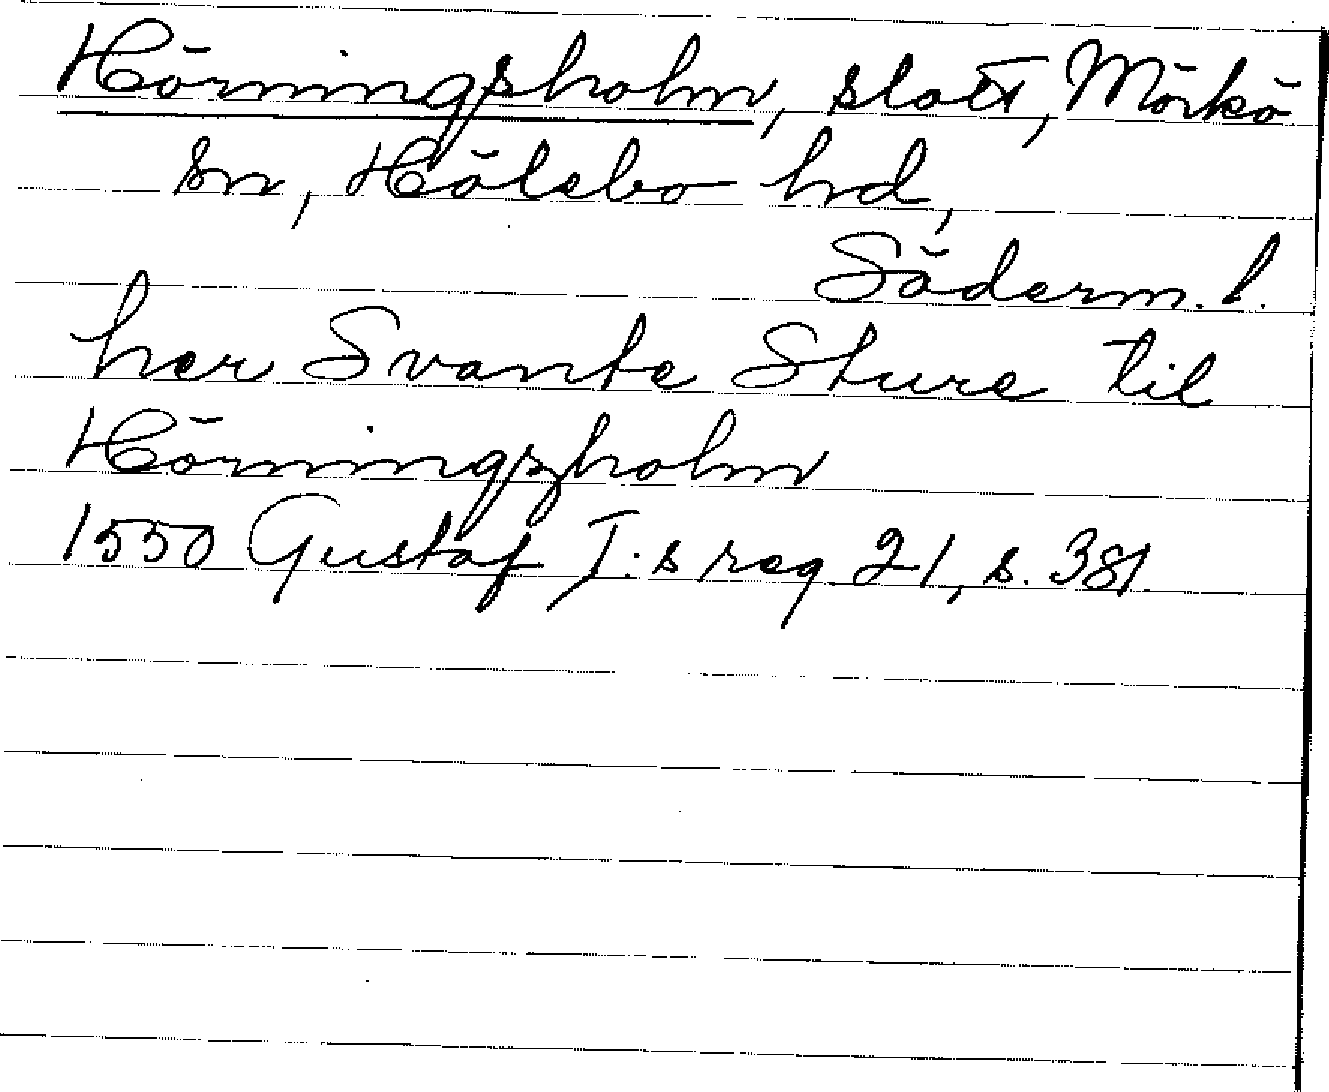 Hörningsholm, slott, Mörkö
sn, Hölebo hd,
Söderm. l.
her Svante Sture til
Hörningzholm
1550 Gustaf I:s reg 21, s. 381